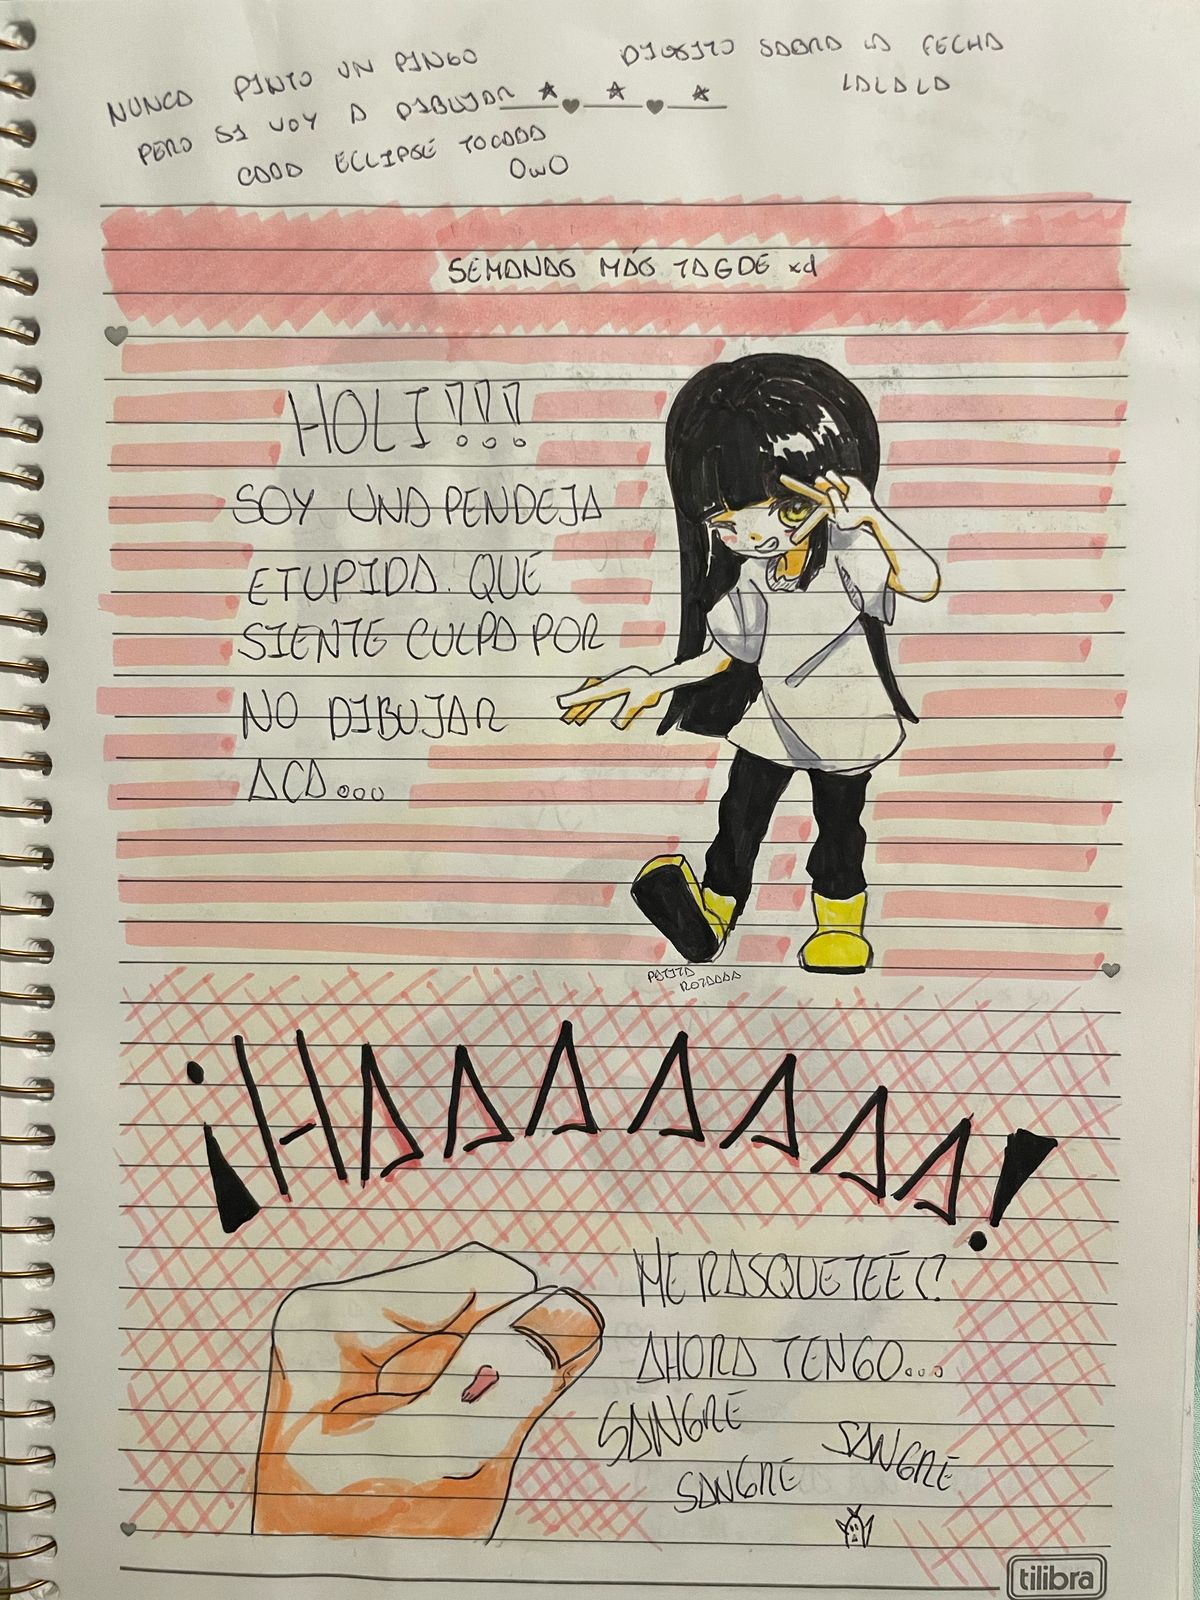 NUNCA PINTO UN PINGO
PERO SI VOY A DIBUJAR
CADA ECLIPSE TOCADA
OwO
DIOSITO SABRA LA FECHA
LALALA
SEMANAS MÁS TAGDE xd
HOLI!!!
SOY UNA PENDEJA
ETUPIDA. QUE
SIENTE CULPA POR
NO DIBUJAR
ACA...
PATITA
ROTAAAA
¡HAAAAAAAA!
ME RASQUETEÉ
AHORA TENGO...
SANGRE
SANGRE
SANGRE
tilibra